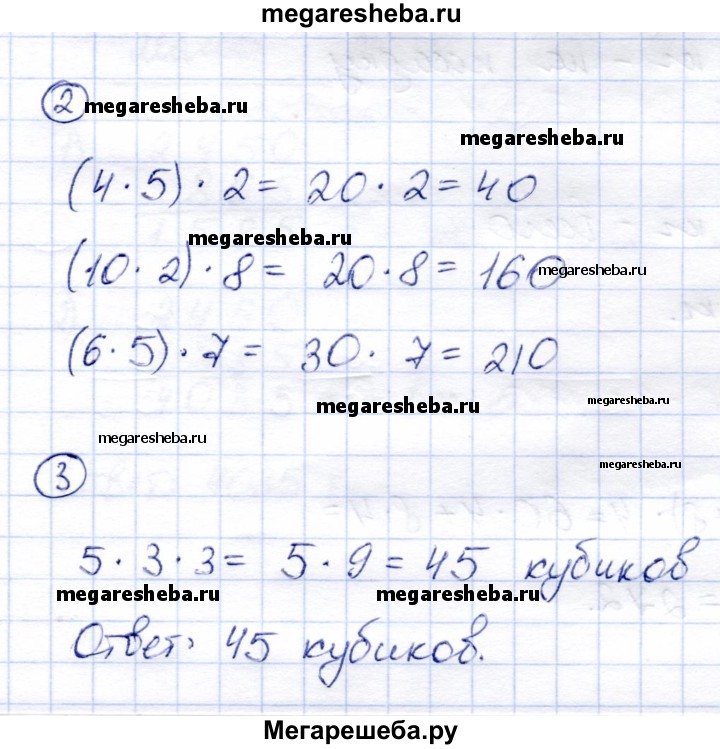 megaresheba.ru
2 megaresheba.ru
megaresheba.ru
(4 · 5) · 2 = 20 · 2 = 40
megaresheba.ru
(10 · 2) · 8 = 20 · 8 = 160
megaresheba.ru
(6 · 5) · 7 = 30 · 7 = 210
megaresheba.ru
megaresheba.ru
megaresheba.ru
megaresheba.ru
3
5 · 3 · 3 = 5 · 9 = 45 кубиков
megaresheba.ru
megaresheba.ru
Ответ: 45 кубиков.
Мегарешеба.ру